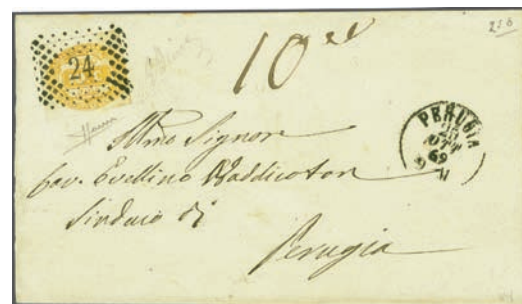 24
10
256
PERUGIA
OTT
69
Illmo Signor
Cav. Evellino Waddington
Sindaco di
Perugia